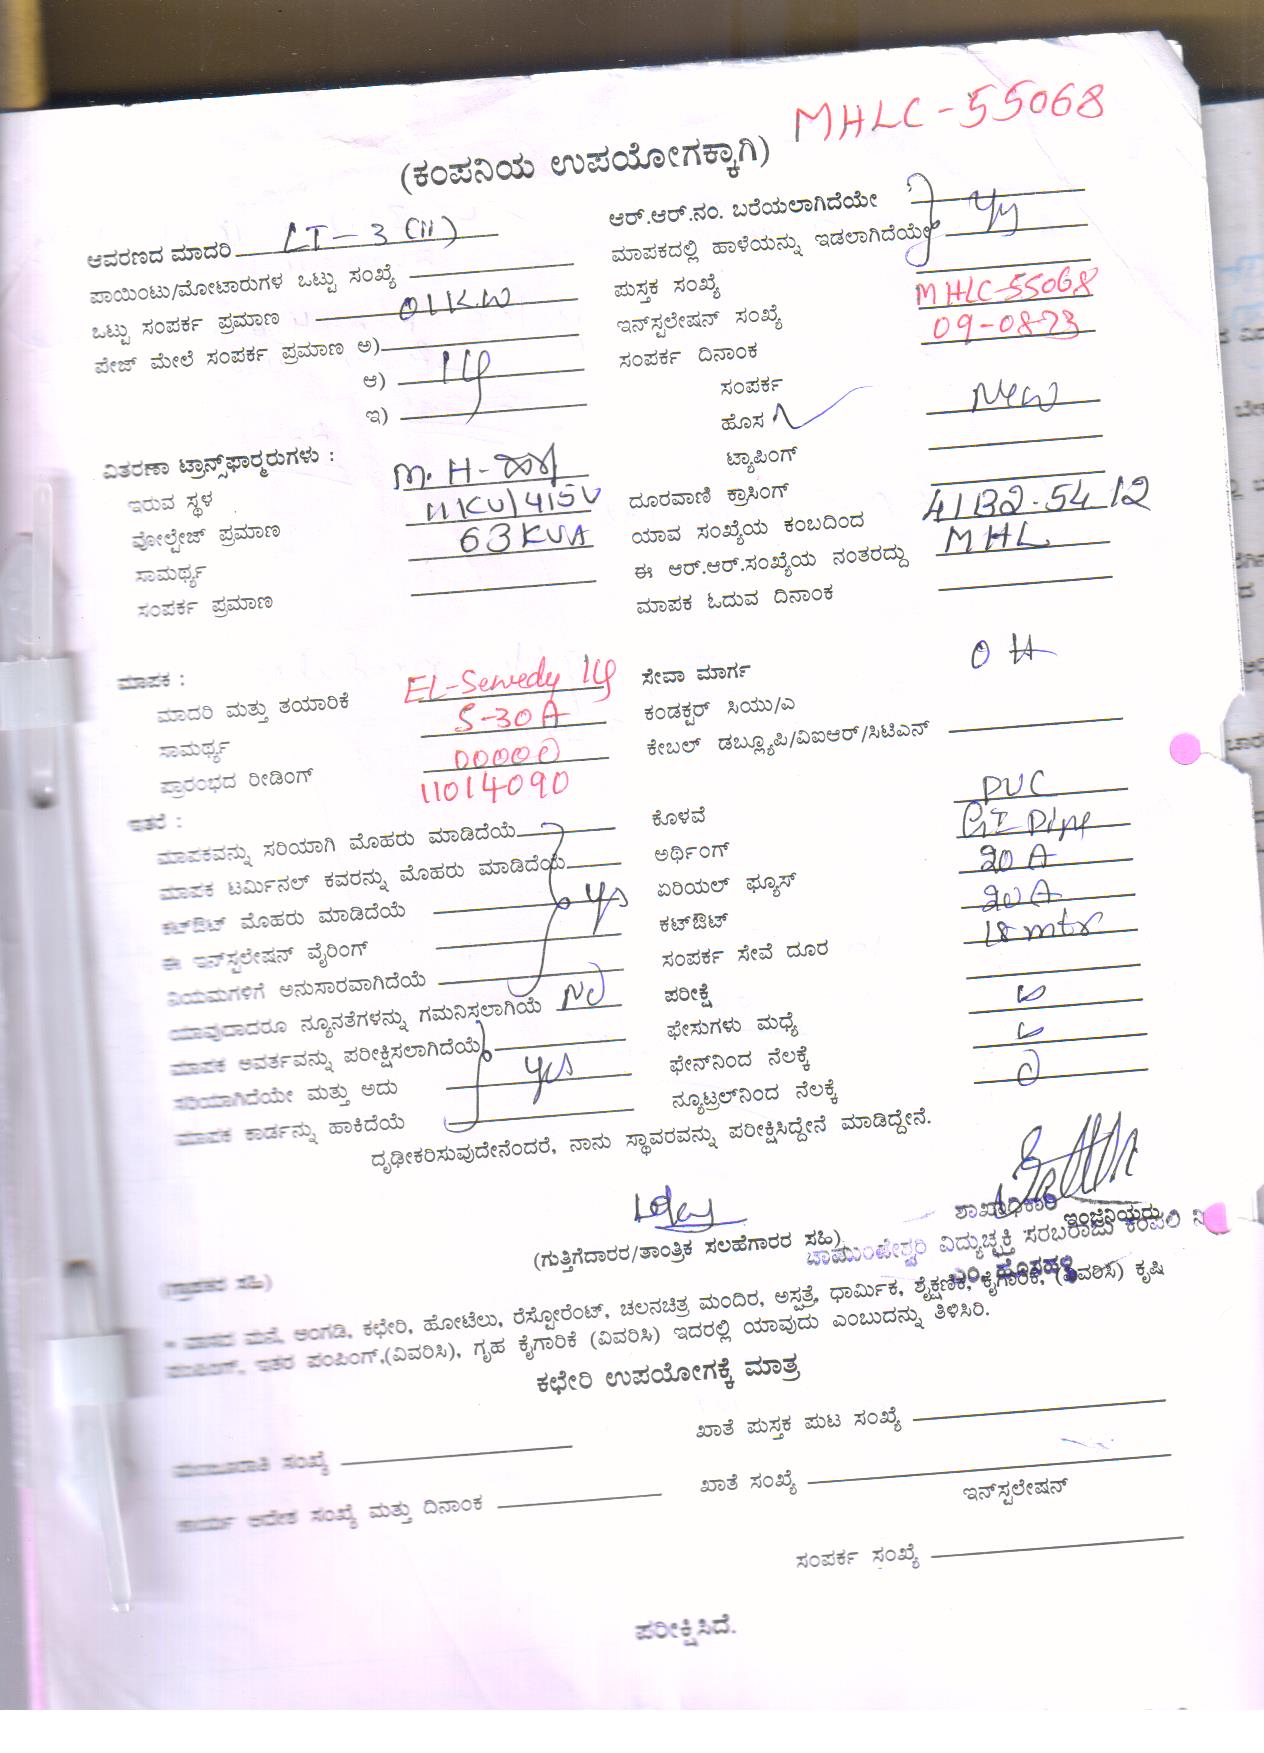 MHLC-55068
(ಕಂಪನಿಯ ಉಪಯೋಗಕ್ಕಾಗಿ)
ಆವರಣದ ಮಾದರಿ LT-3 (ii)
ಪಾಯಿಂಟು/ಮೋಟಾರುಗಳ ಒಟ್ಟು ಸಂಖ್ಯೆ
ಒಟ್ಟು ಸಂಪರ್ಕ ಪ್ರಮಾಣ 01KW
ಪೇಜ್ ಮೇಲೆ ಸಂಪರ್ಕ ಪ್ರಮಾಣ ಅ)
ಆ)
ಇ)
ಆರ್.ಆರ್.ನಂ. ಬರೆಯಲಾಗಿದೆಯೇ
ಮಾಪಕದಲ್ಲಿ ಹಾಳೆಯನ್ನು ಇಡಲಾಗಿದೆಯೇ
ಪುಸ್ತಕ ಸಂಖ್ಯೆ
ಇನ್‌ಸ್ಟಲೇಷನ್ ಸಂಖ್ಯೆ MHLC-55068
ಸಂಪರ್ಕ ದಿನಾಂಕ 09-08-23
ಸಂಪರ್ಕ
ಹೊಸ New
ಟ್ಯಾಪಿಂಗ್
ದೂರವಾಣಿ ಕ್ರಾಸಿಂಗ್
ಯಾವ ಸಂಖ್ಯೆಯ ಕಂಬದಿಂದ
ಈ ಆರ್.ಆರ್.ಸಂಖ್ಯೆಯ ನಂತರದ್ದು MHL
ಮಾಪಕ ಓದುವ ದಿನಾಂಕ
ವಿತರಣಾ ಟ್ರಾನ್ಸ್‌ಫಾರ್ಮರುಗಳು :
ಇರುವ ಸ್ಥಳ M.H-
ವೋಲ್ಟೇಜ್ ಪ್ರಮಾಣ 11KV/415V
ಸಾಮರ್ಥ್ಯ 63KVA
ಸಂಪರ್ಕ ಪ್ರಮಾಣ
ಮಾಪಕ :
ಮಾದರಿ ಮತ್ತು ತಯಾರಿಕೆ EL-Sewedy
ಸಾಮರ್ಥ್ಯ 5-30A
ಪ್ರಾರಂಭದ ರೀಡಿಂಗ್ 00000
11014090
ಸೇವಾ ಮಾರ್ಗ OH
ಕಂಡಕ್ಟರ್ ಸಿಯು/ಎ
ಕೇಬಲ್ ಡಬ್ಲ್ಯೂಪಿ/ವಿಐಆರ್/ಸಿಟಿಎನ್
ಇತರೆ :
ಮಾಪಕವನ್ನು ಸರಿಯಾಗಿ ಮೊಹರು ಮಾಡಿದೆಯೆ
ಮಾಪಕ ಟರ್ಮಿನಲ್ ಕವರನ್ನು ಮೊಹರು ಮಾಡಿದೆಯೆ
ಕಟ್‌ಔಟ್ ಮೊಹರು ಮಾಡಿದೆಯೆ
ಈ ಇನ್‌ಸ್ಟಲೇಷನ್ ವೈರಿಂಗ್
ನಿಯಮಗಳಿಗೆ ಅನುಸಾರವಾಗಿದೆಯೆ
ಯಾವುದಾದರೂ ನ್ಯೂನತೆಗಳನ್ನು ಗಮನಿಸಲಾಗಿಯೆ No
ಮಾಪಕ ಅವರ್ತವನ್ನು ಪರೀಕ್ಷಿಸಲಾಗಿದೆಯೆ
ಸರಿಯಾಗಿದೆಯೇ ಮತ್ತು ಅದು yes
ಮಾಪಕ ಕಾರ್ಡನ್ನು ಹಾಕಿದೆಯೆ
ಕೊಳವೆ PVC
ಅರ್ಥಿಂಗ್ GI Pipe
ಏರಿಯಲ್ ಫ್ಯೂಸ್ 20 A
ಕಟ್‌ಔಟ್ 20 A
ಸಂಪರ್ಕ ಸೇವೆ ದೂರ 18 mtr
ಪರೀಕ್ಷೆ
ಫೇಸುಗಳು ಮಧ್ಯೆ
ಫೇನ್‌ನಿಂದ ನೆಲಕ್ಕೆ
ನ್ಯೂಟ್ರಲ್‌ನಿಂದ ನೆಲಕ್ಕೆ
ದೃಢೀಕರಿಸುವುದೇನೆಂದರೆ, ನಾನು ಸ್ಥಾವರವನ್ನು ಪರೀಕ್ಷಿಸಿದ್ದೇನೆ ಮಾಡಿದ್ದೇನೆ.
ಶಾಖಾಧಿಕಾರಿ
ಇಂಜಿನಿಯರು
(ಗುತ್ತಿಗೆದಾರರ/ತಾಂತ್ರಿಕ ಸಲಹೆಗಾರರ ಸಹಿ)
ಚಾಮುಂಡೇಶ್ವರಿ ವಿದ್ಯುಚ್ಛಕ್ತಿ ಸರಬರಾಜು ಕಂಪನಿ ನಿ
ಎಂ. ಹೊಸಹಳ್ಳಿ
(ಗ್ರಾಹಕರ ಸಹಿ)
* ವಾಸದ ಮನೆ, ಅಂಗಡಿ, ಕಛೇರಿ, ಹೋಟೆಲು, ರೆಸ್ಟೋರೆಂಟ್, ಚಲನಚಿತ್ರ ಮಂದಿರ, ಅಸ್ಪತ್ರೆ, ಧಾರ್ಮಿಕ, ಶೈಕ್ಷಣಿಕ, ಕೈಗಾರಿಕೆ, (ವಿವರಿಸಿ) ಕೃಷಿ
ಪಂಪಿಂಗ್, ಇತರ ಪಂಪಿಂಗ್,(ವಿವರಿಸಿ), ಗೃಹ ಕೈಗಾರಿಕೆ (ವಿವರಿಸಿ) ಇದರಲ್ಲಿ ಯಾವುದು ಎಂಬುದನ್ನು ತಿಳಿಸಿರಿ.
ಕಛೇರಿ ಉಪಯೋಗಕ್ಕೆ ಮಾತ್ರ
ಮಂಜೂರಾತಿ ಸಂಖ್ಯೆ
ಖಾತೆ ಪುಸ್ತಕ ಪುಟ ಸಂಖ್ಯೆ
ಕಾರ್ಯ ಆದೇಶ ಸಂಖ್ಯೆ ಮತ್ತು ದಿನಾಂಕ
ಖಾತೆ ಸಂಖ್ಯೆ
ಇನ್‌ಸ್ಟಲೇಷನ್
ಸಂಪರ್ಕ ಸಂಖ್ಯೆ
ಪರೀಕ್ಷಿಸಿದೆ.